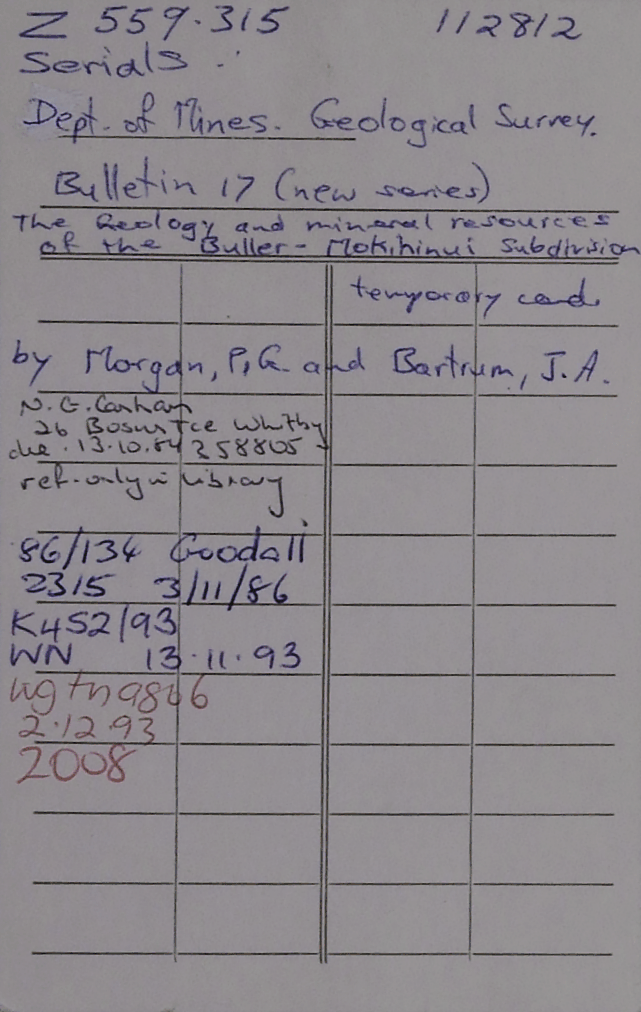 Z 559.315 112812
Serials
Dept. of Mines. Geological Survey.
Bulletin 17 (new series)
The Geology and mineral resources
of the Buller-Mokihinui Subdivision
temporary card
by Morgan, P.G. and Bartrum, J.A.
N.G.
26 Tce Whitby
due 13.10.84 358805
ref. only in library
86/134 Goodall
2315 3/11/86
K452/93
WN 13.11.93
wgtn 9866
2.12.93
2008